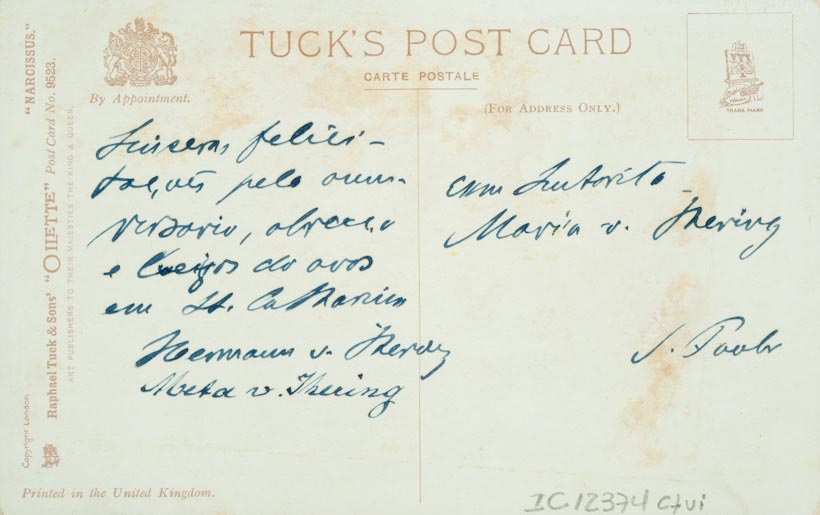 TUCK'S POST CARD
CARTE POSTALE
By Appointment.
(FOR ADDRESS ONLY.)
TRADE MARK
"NARCISSUS."
Raphael Tuck & Sons' "OILETTE" Post Card No. 9523.
ART PUBLISHERS TO THEIR MAJESTIES THE KING & QUEEN.
Copyright London.
Sinceras felici-
tações pelo anni-
versario, abraço
e beijos do avos
em St. Catharina
Hermann v. Ihering
Meta v. Ihering
Exm Senhorita
Maria v. Ihering
S. Paulo
Printed in the United Kingdom.
IC12374 cfvi